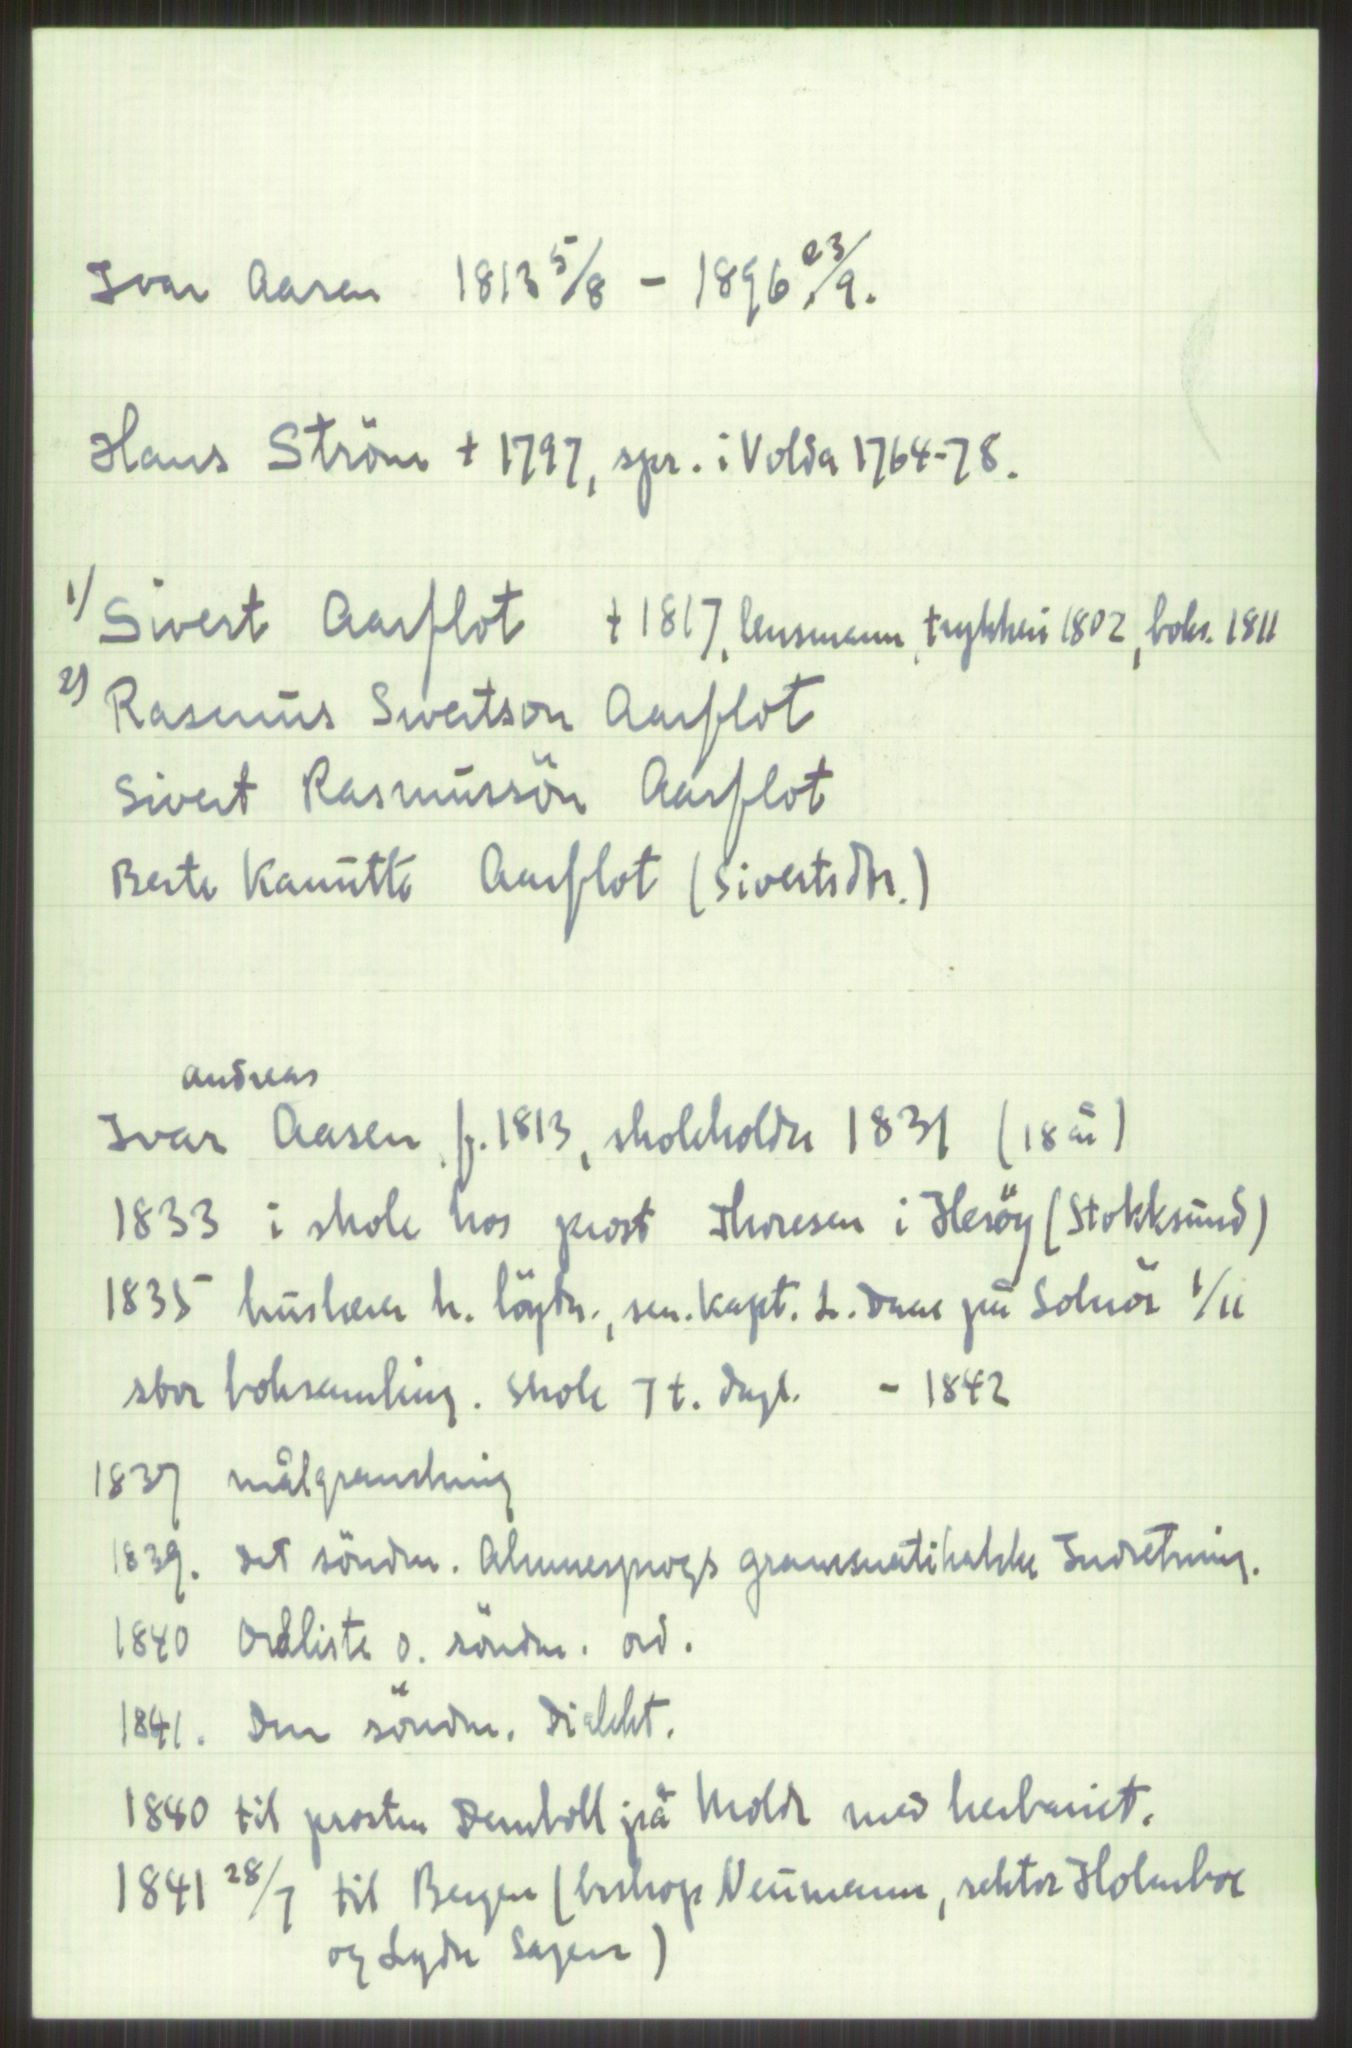 Ivar Aasen 1813 5/8 - 1896 23/9.
Hans Ström † 1797, spr. i Volda 1764-78.
1/ Sivert Aarflot † 1817, lensmann, trykkeri 1802, boks. 1811
2) Rasmus Sivertson Aarflot
Sivert Rasmussön Aarflot
Berte Kanutte Aarflot (Sivertsdtr.)
Andreas
Ivar Aasen f. 1813, skoleholder 1831 (18 år)
1833 i skole hos prost Thoresen i Heröy (Stokksund)
1835 huslærer h. löytn., sen. kapt. L. Daae på Solnör 1/11
stor boksamling. Skole 7 t. dagl. - 1842
1837 målgranskning
1839. Det söndm. Almuesprogs grammatikalske Indretning.
1840 Ordliste o. söndm. ord.
1841. Den söndm. Dialekt.
1840 til prosten Deinboll på Molde med herbariet.
1841 28/7 til Bergen (biskop Neumann, rektor Holmboe
og Lyder Sagen)